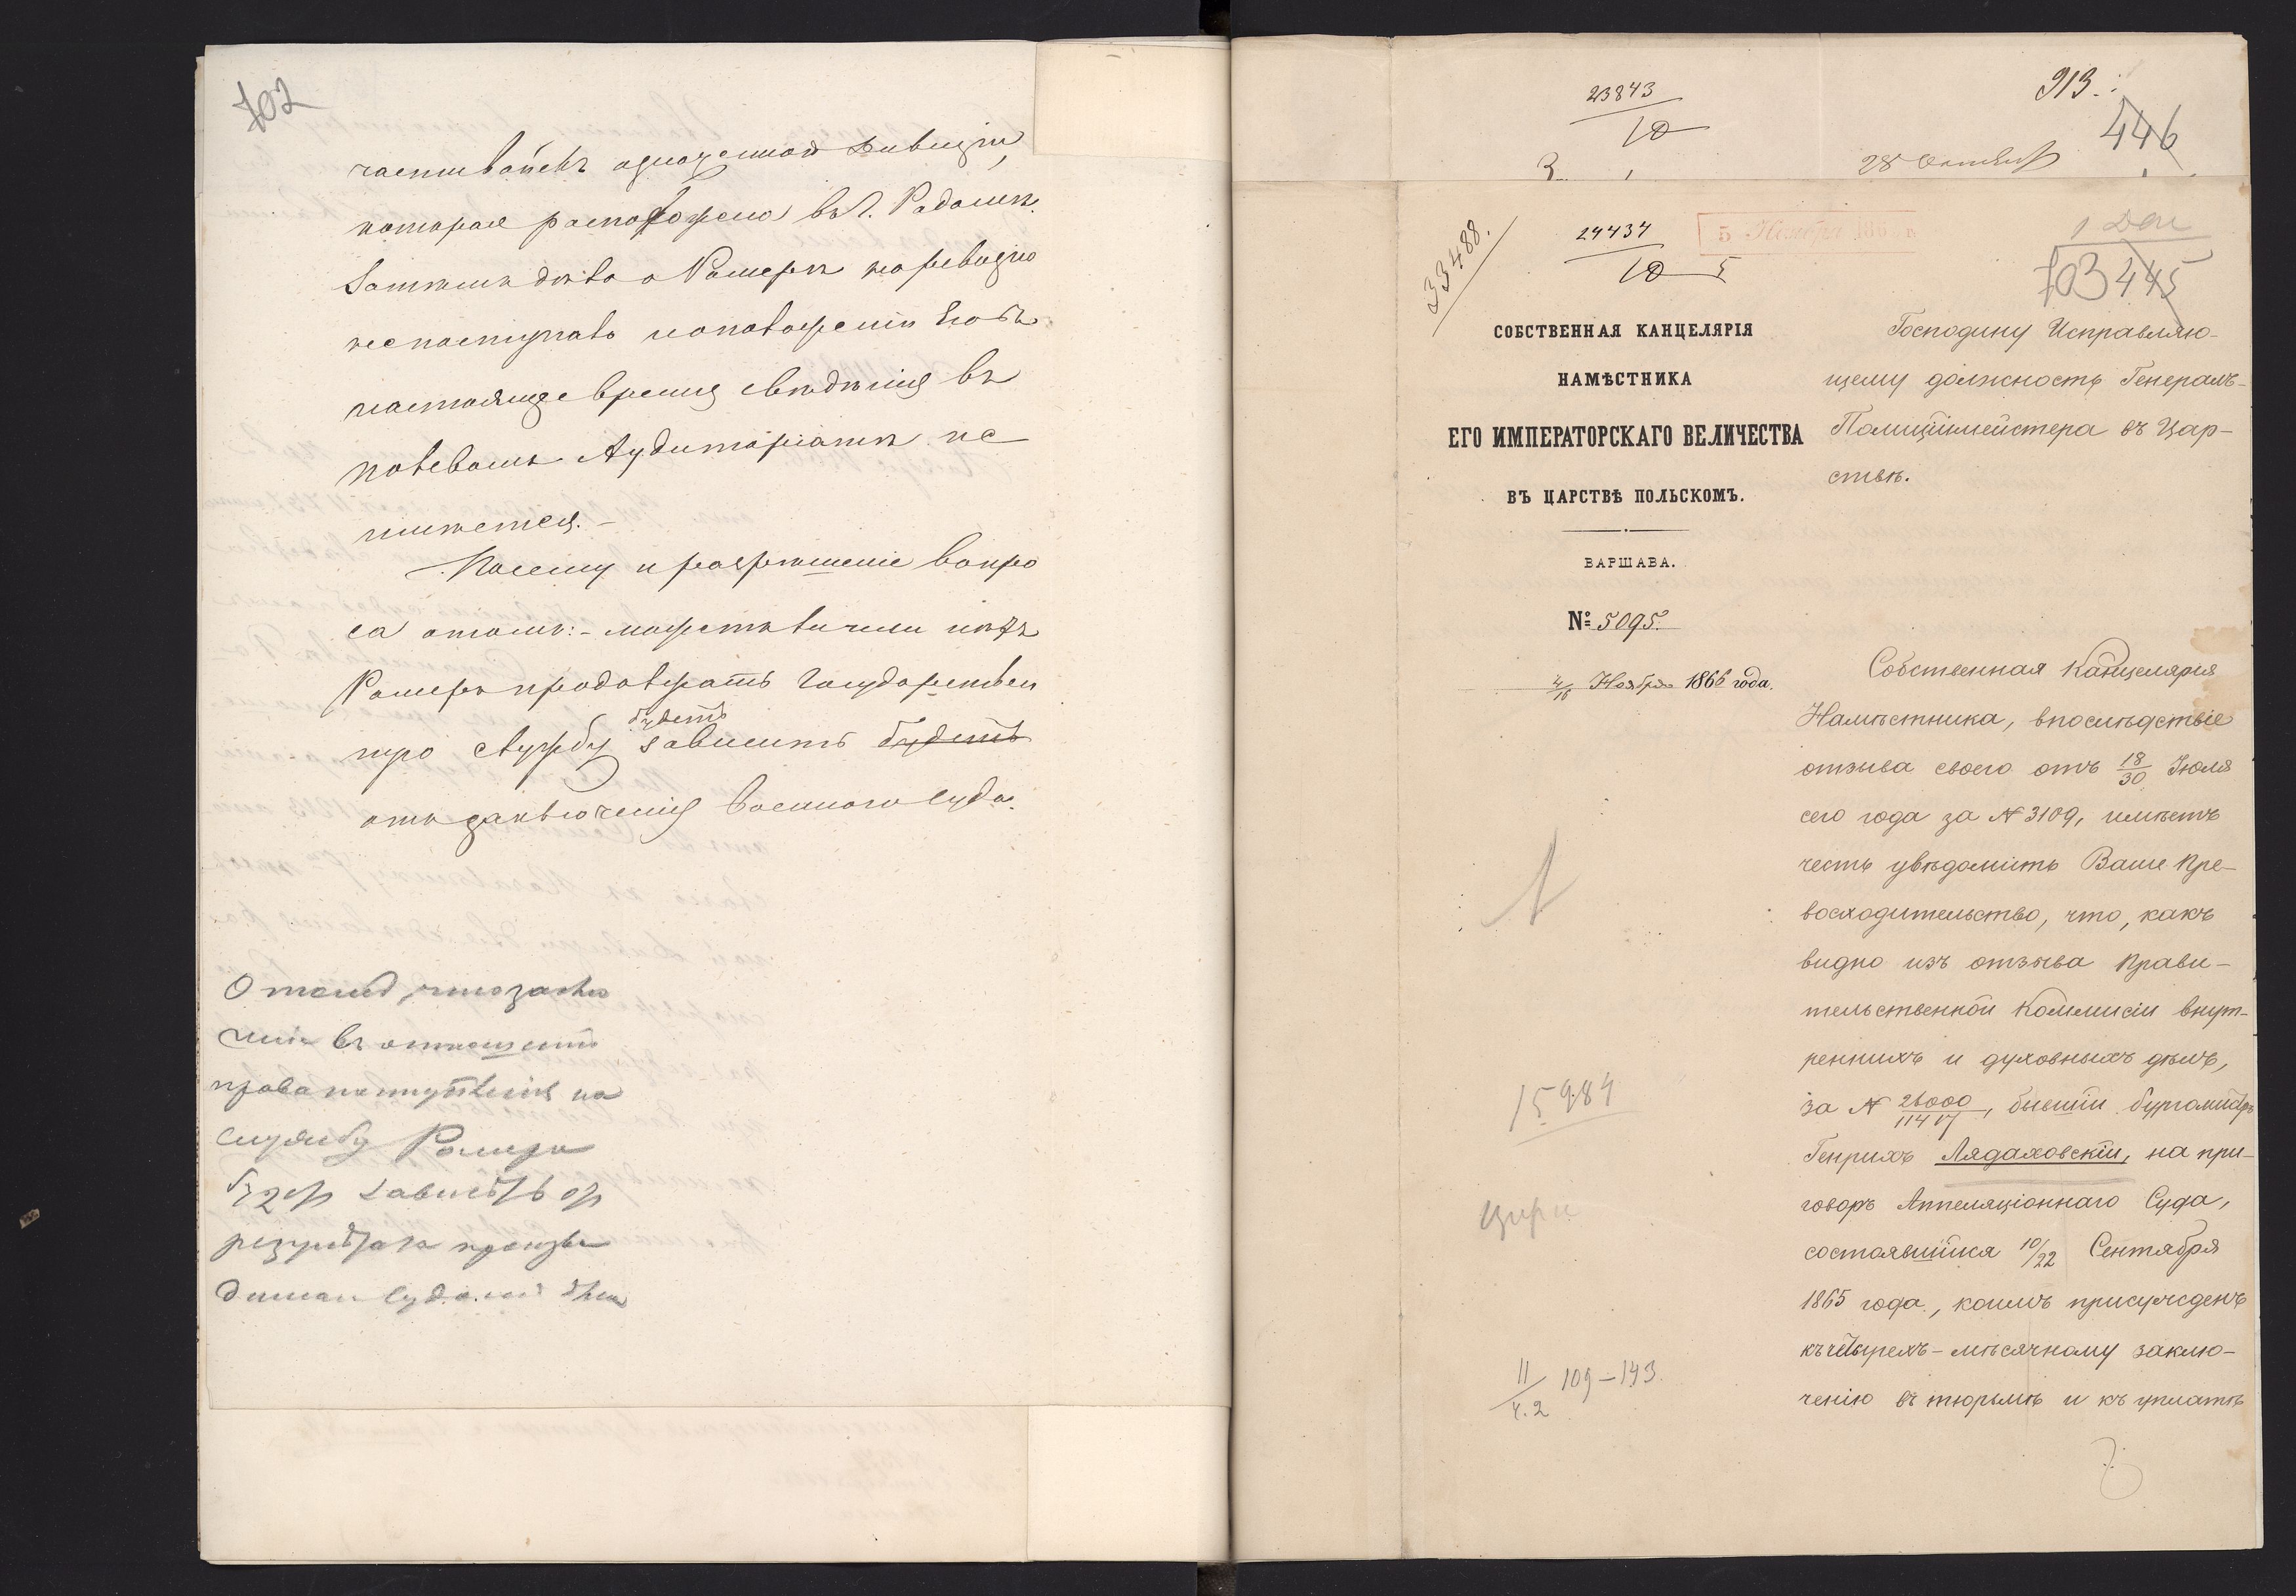 702
частивойскъ одноземной дивизіи,
которая расположена въ г. Радомѣ.
Затѣмъ дѣло о Ромерѣ на ревизію
не поступало и о положеніи его въ
настоящее время свѣдѣнія въ
полевомъ Аудиторіатѣ не
имѣется. —
Посему и разрѣшеніе вопро
са о томъ: - можетъ ли или нѣтъ
Ромеръ продолжать Государствен
ную службу будетъ зависить будетъ
отъ заключенія военнаго суда.
права поступленія на
службу Ромера
будетъ зависѣть отъ
результата произве
913.
446
23843
10
28 Октября
33488.
24434
10 5
5 Ноября 186
703 445
СОБСТВЕННАЯ КАНЦЕЛЯРІЯ
НАМѢСТНИКА
ЕГО ИМПЕРАТОРСКАГО ВЕЛИЧЕСТВА
ВЪ ЦАРСТВѢ ПОЛЬСКОМЪ.
ВАРШАВА.
№ 5095.
4/16 Ноября 1866 года.
15984
11/ч.2 109-143.
Господину Исправляю-
щему должность Генералъ-
Полиціймейстера въ Цар-
ствѣ.
Собственная Канцелярія
Намѣстника, впослѣдствіе
отзыва своего отъ 18/30 Іюля
сего года за № 3109, имѣетъ
честь увѣдомить Ваше Пре-
восходительство, что, какъ
видно изъ отзыва Прави-
тельственной Коммисіи внут-
реннихъ и духовныхъ дѣлъ,
за № 26000/11417, бывшій бургомистръ
Генрихъ Лядаховскій, на при-
говоръ Аппеляціоннаго Суда,
состоявшійся 10/22 Сентября
1865 года, коимъ присужденъ
къ четырехъ-мѣсячному заклю-
ченію въ тюрьмѣ и къ уплатѣ